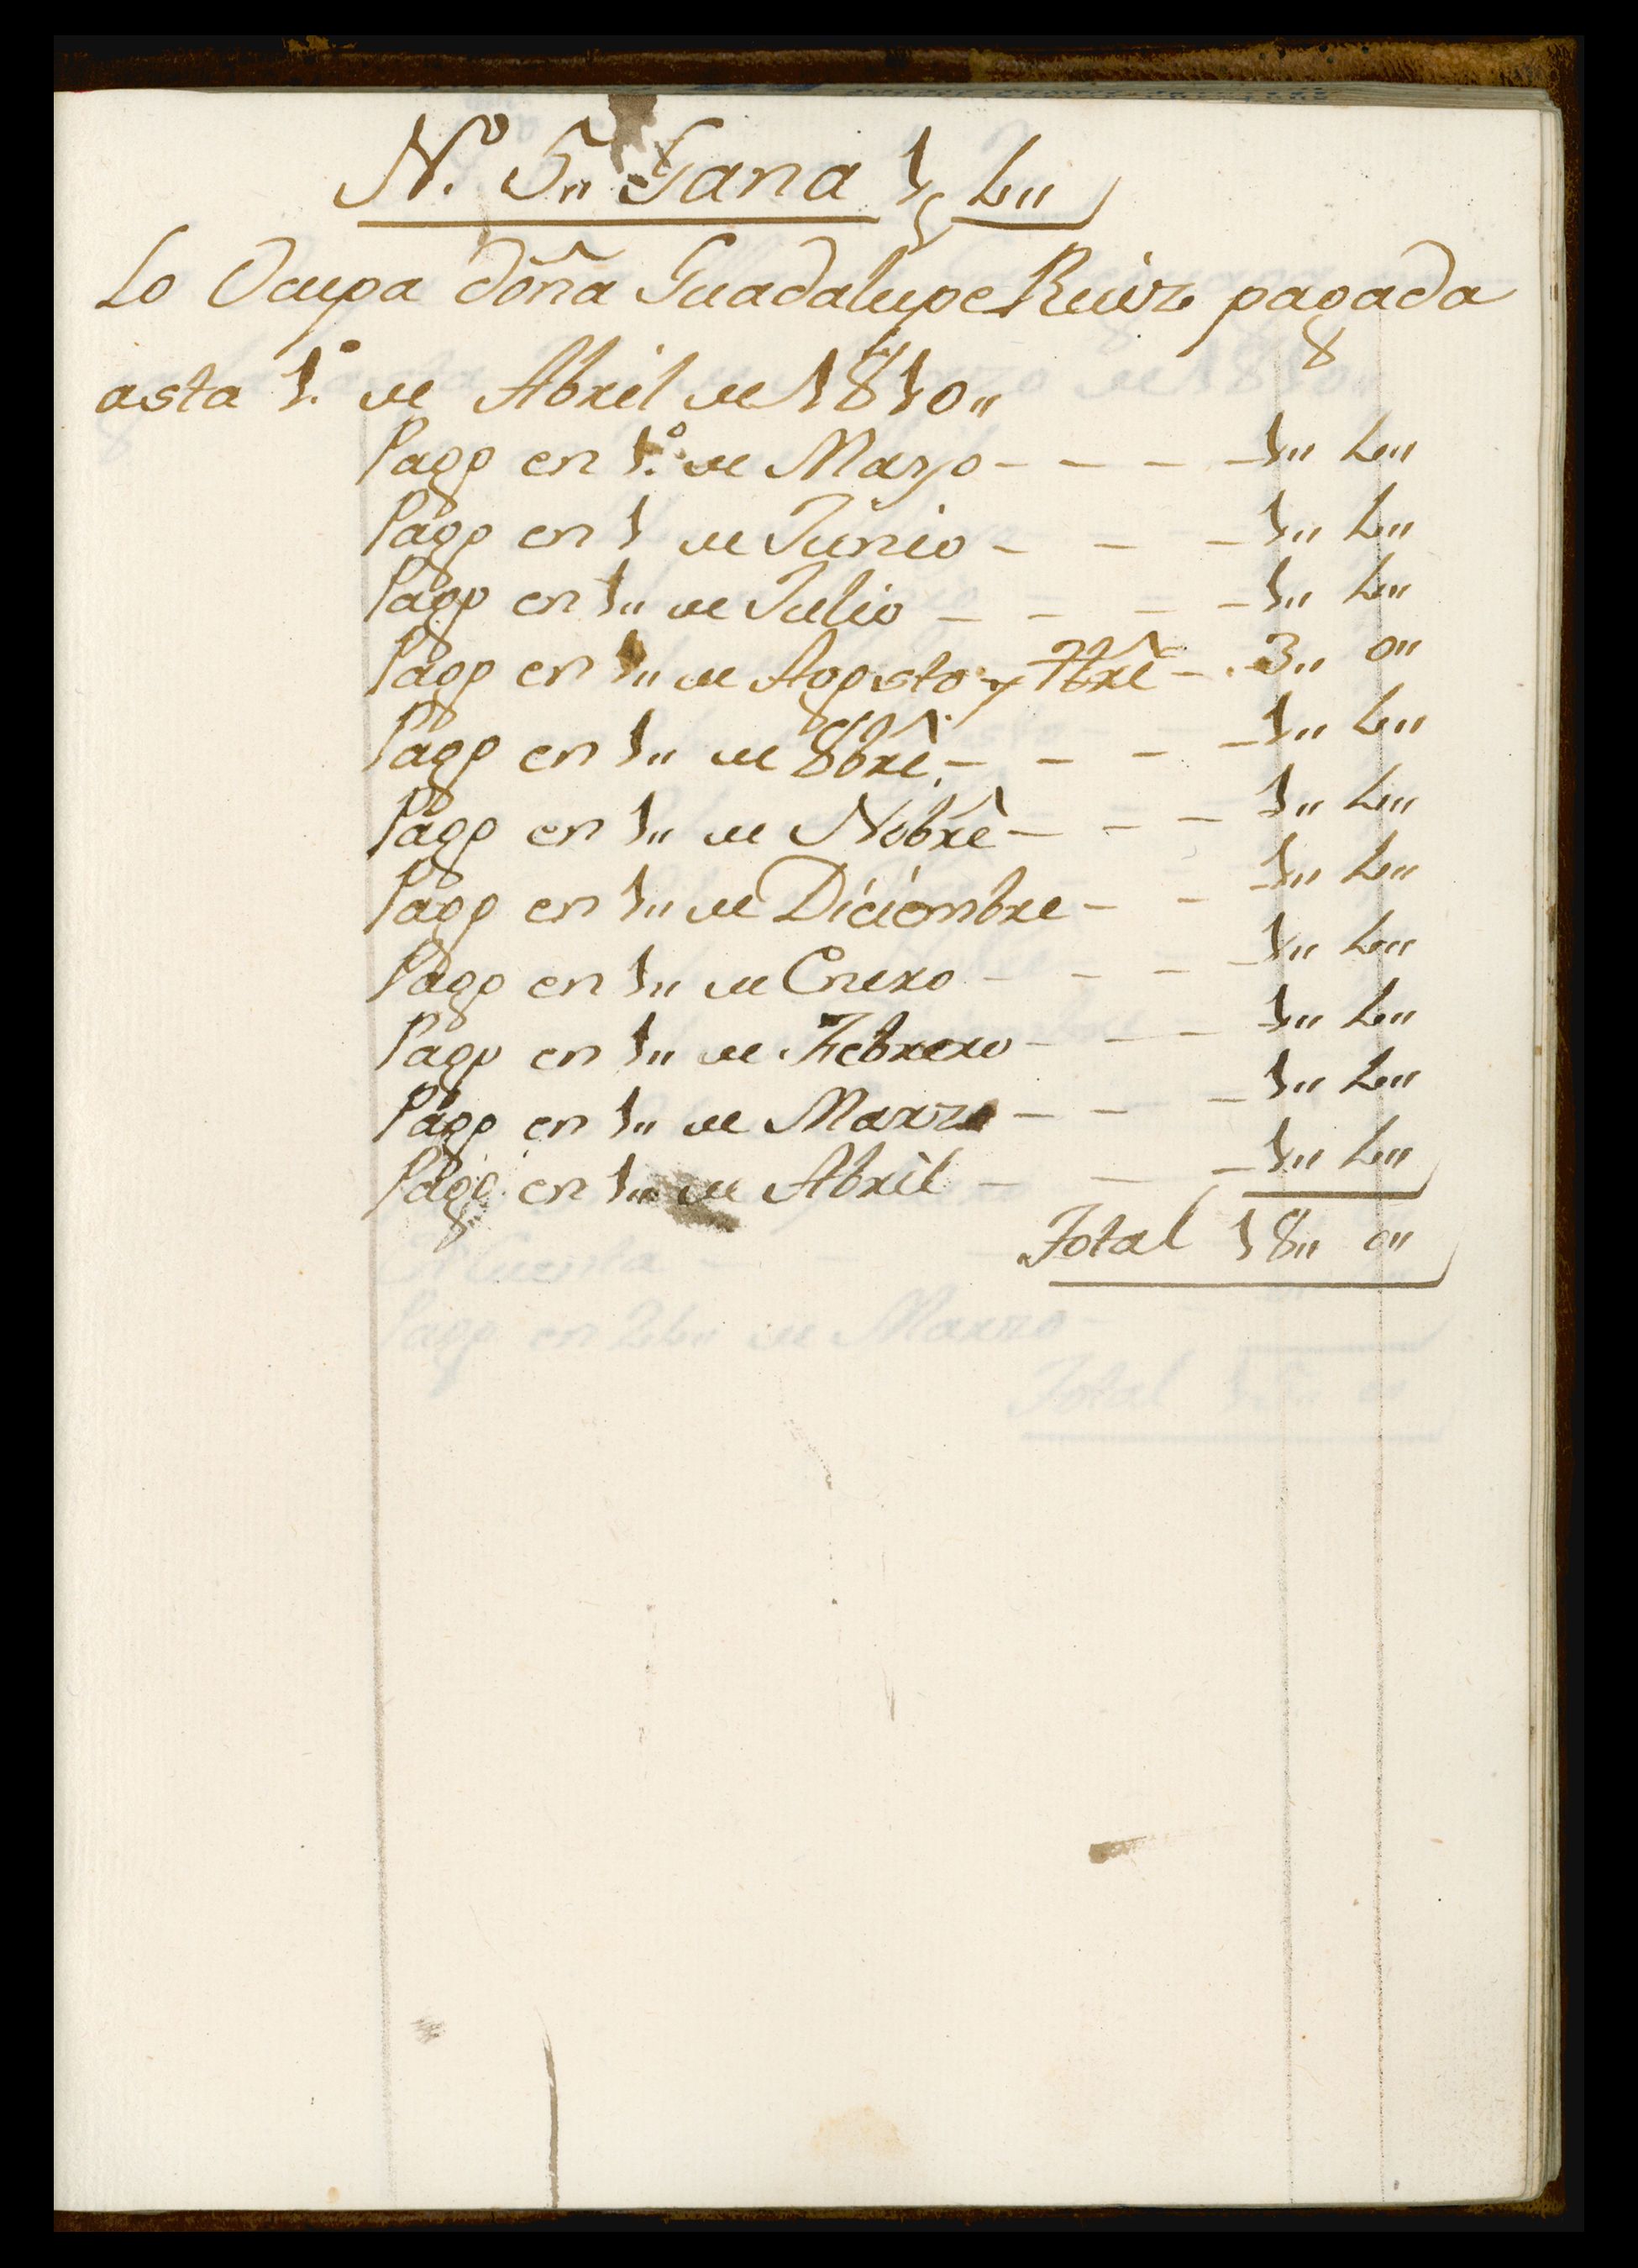 N.º 5,, Gana 1 4,,
Lo Ocupa doña Guadalupe Ruiz pagada
asta 1.º de Abril de 1810,,
Pago en 1.º de Mayo - - - - 1,, 4,,
Pago en 1 de Junio - - - 1,, 4,,
Pago en 1,, de Julio - - - - 1,, 4,,
Pago en 1,, de Agosto y 7bre - 3,, 0,,
Pago en 1,, de 8bre - - - - 1,, 4,,
Pago en 1,, de Nobre - - - 1,, 4,,
Pago en 1,, de Diciembre - - 1,, 4,,
Pago en 1,, de Enero - - - - 1,, 4,,
Pago en 1,, de Febrero - - - 1,, 4,,
Pago en 1,, de Marzo - - - 1,, 4,,
Pago en 1,, de Abril - - - 1,, 4,,
Total 18,, 0,,